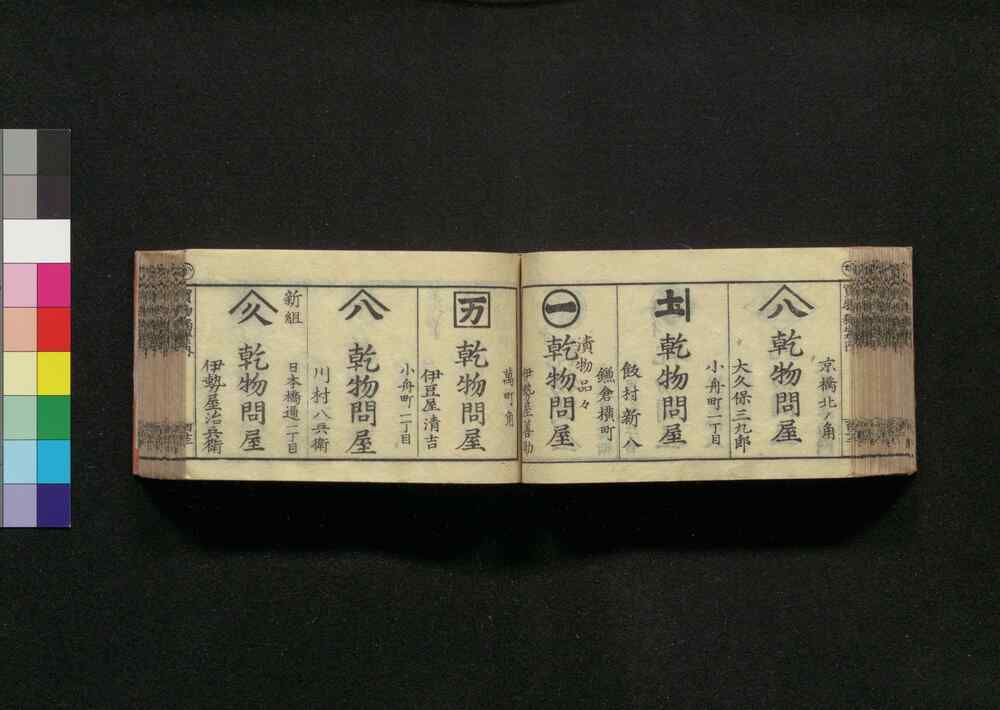 京橋北ノ角
八
乾物問屋
大久保三九郎
小舟町一丁目
土
乾物問屋
飯村新八
鎌倉横町
漬物品々
一
乾物問屋
伊勢屋善助
萬町角
万
乾物問屋
伊豆屋清吉
小舟町一丁目
八
乾物問屋
川村八兵衛
新組
日本橋通一丁目
久
乾物問屋
伊勢屋治兵衛